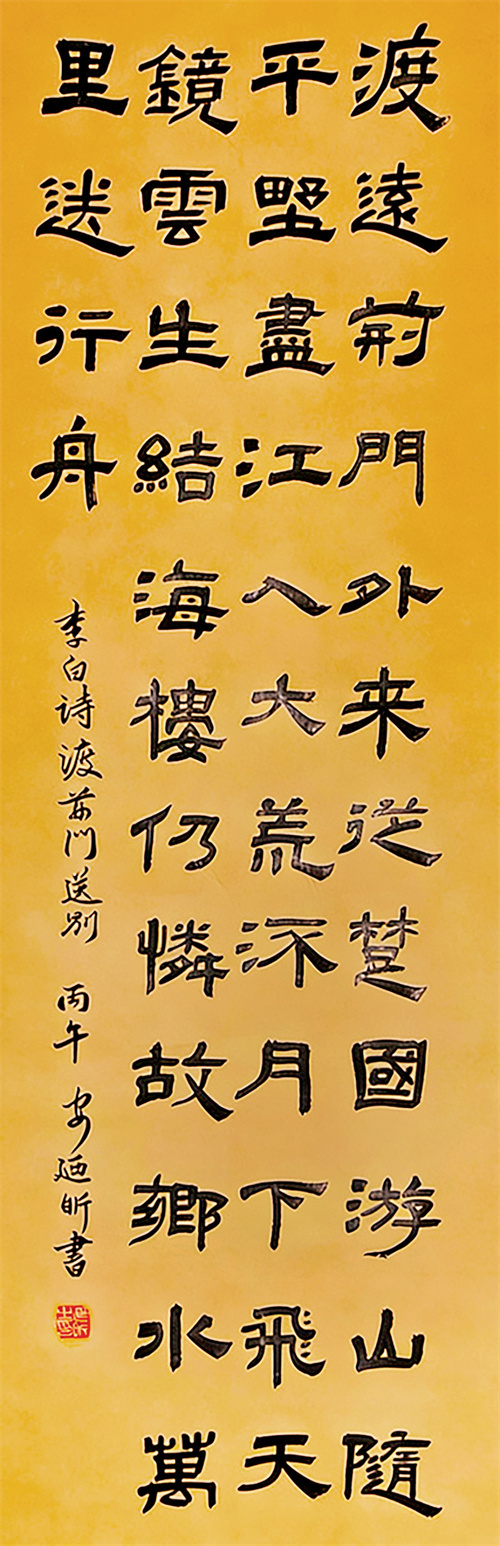 渡遠荊門外来從楚國游山隨
平野盡江入大荒流月下飛天
鏡雲生結海樓仍憐故鄉水萬
里送行舟
李白诗渡荊門送别 丙午 安廼昕書